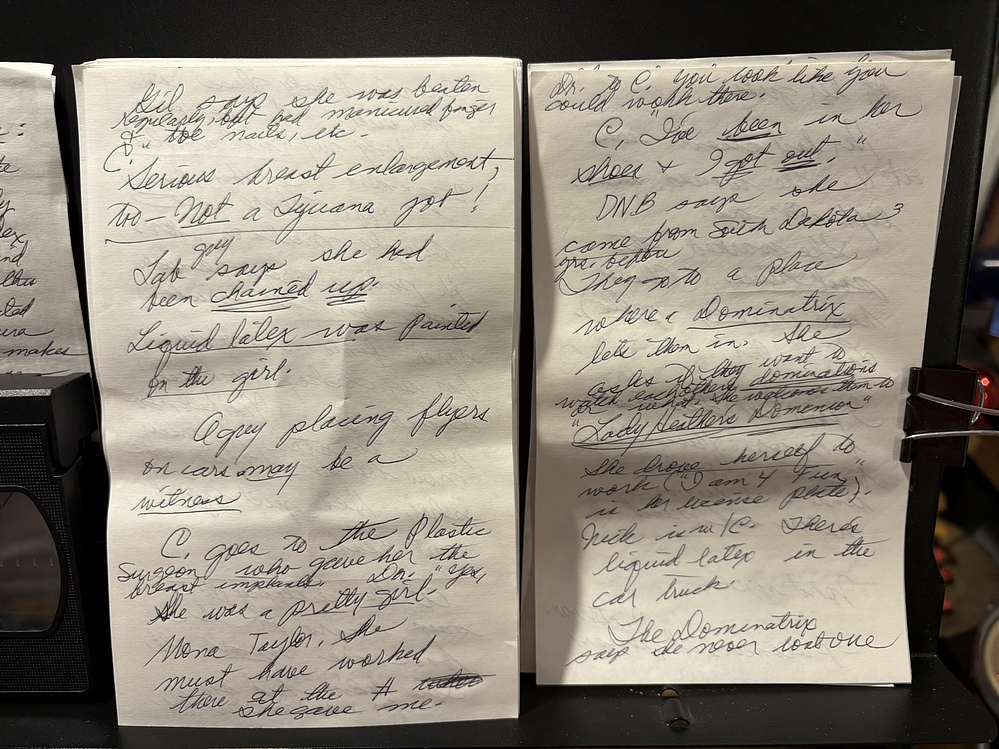 :
te
y
lex
and
this
ura
makes
Gil says she was beaten
regularly, but had manicured finger
& toe nails, etc.
C "Serious breast enlargement,
too – Not a Tijuana jot!
Lab guy says she had
been chained up.
Liquid latex was painted
on the girl.
A guy placing flyers
on cars may be a
witness
C. goes to the Plastic
Surgeon who gave her the
breast implants. Dr. "Yes,
She was a pretty girl.
Mona Taylor. She
must have worked
there at the #
she gave me.
Dr. to C. "You look like you
could work there.
C, "I've been in her
shoes & I got out."
DNB says she
came from South Dakota 3
yrs. before
They go to a place
where a Dominatrix
lets them in. She
asks if they want to
watch each others dominations
or what. She welcomes them to
"Lady Heathers Domenion"
She drove herself to
work ("I am 4 Fun"
is her license plate).
Nick is w/C. Theres
liquid latex in the
car trunk.
The Dominatrix
says she never lost one